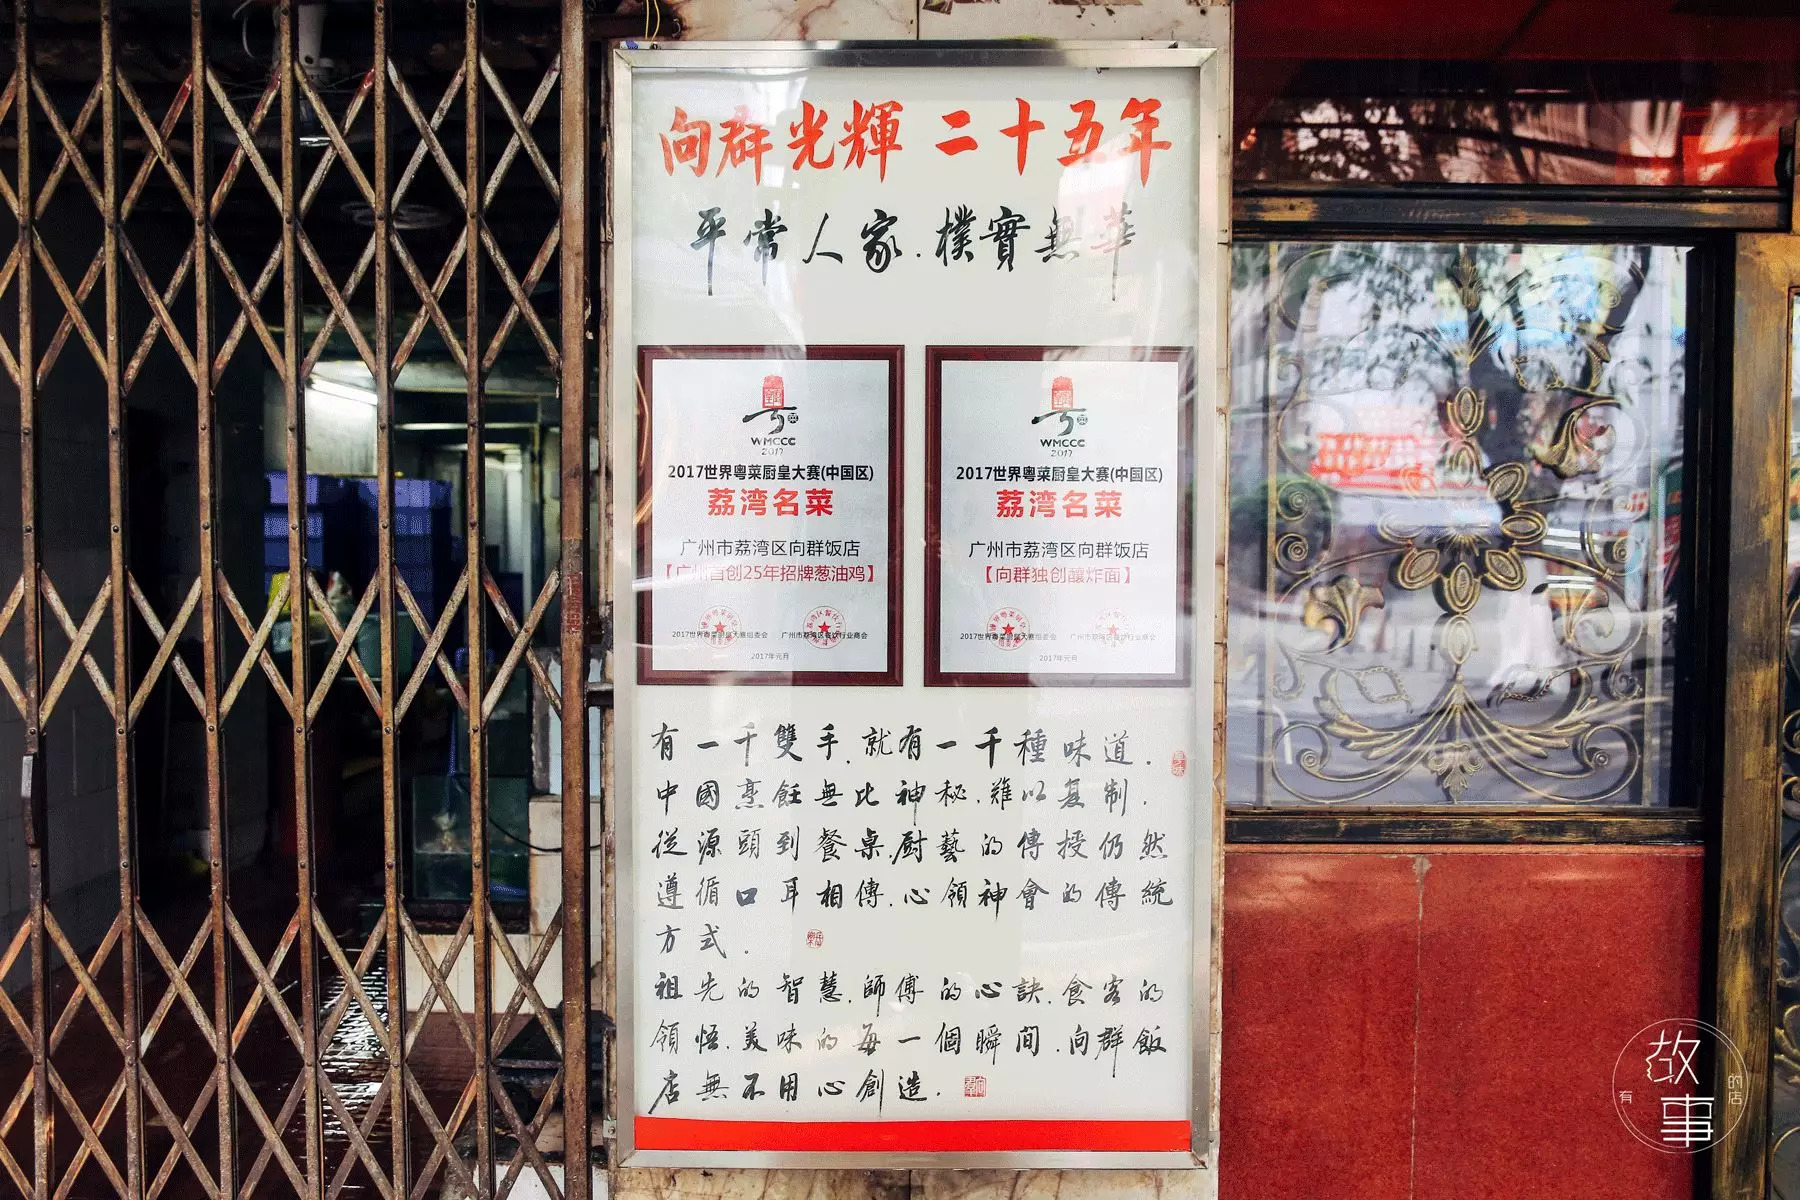 向群光輝 二十五年
平常人家.樸實無華
WMCCC
2017
2017世界粤菜厨皇大赛(中国区)
荔湾名菜
广州市荔湾区向群饭店
【广州首创25年招牌葱油鸡】
2017世界粤菜厨皇大赛组委会
广州市荔湾区餐饮行业商会
2017年元月
WMCCC
2017
2017世界粤菜厨皇大赛(中国区)
荔湾名菜
广州市荔湾区向群饭店
【向群独创酿炸面】
2017世界粤菜厨皇大赛组委会
广州市荔湾区餐饮行业商会
2017年元月
有一千雙手.就有一千種味道.
中國烹飪無比神秘.難以复制.
從源頭到餐桌.厨藝的傳授仍然
遵循口耳相傳.心領神會的傳統
方式.
祖先的智慧.師傅的心訣.食客的
領悟.美味的每一個瞬間.向群飯
店無不用心創造.
有故事的店